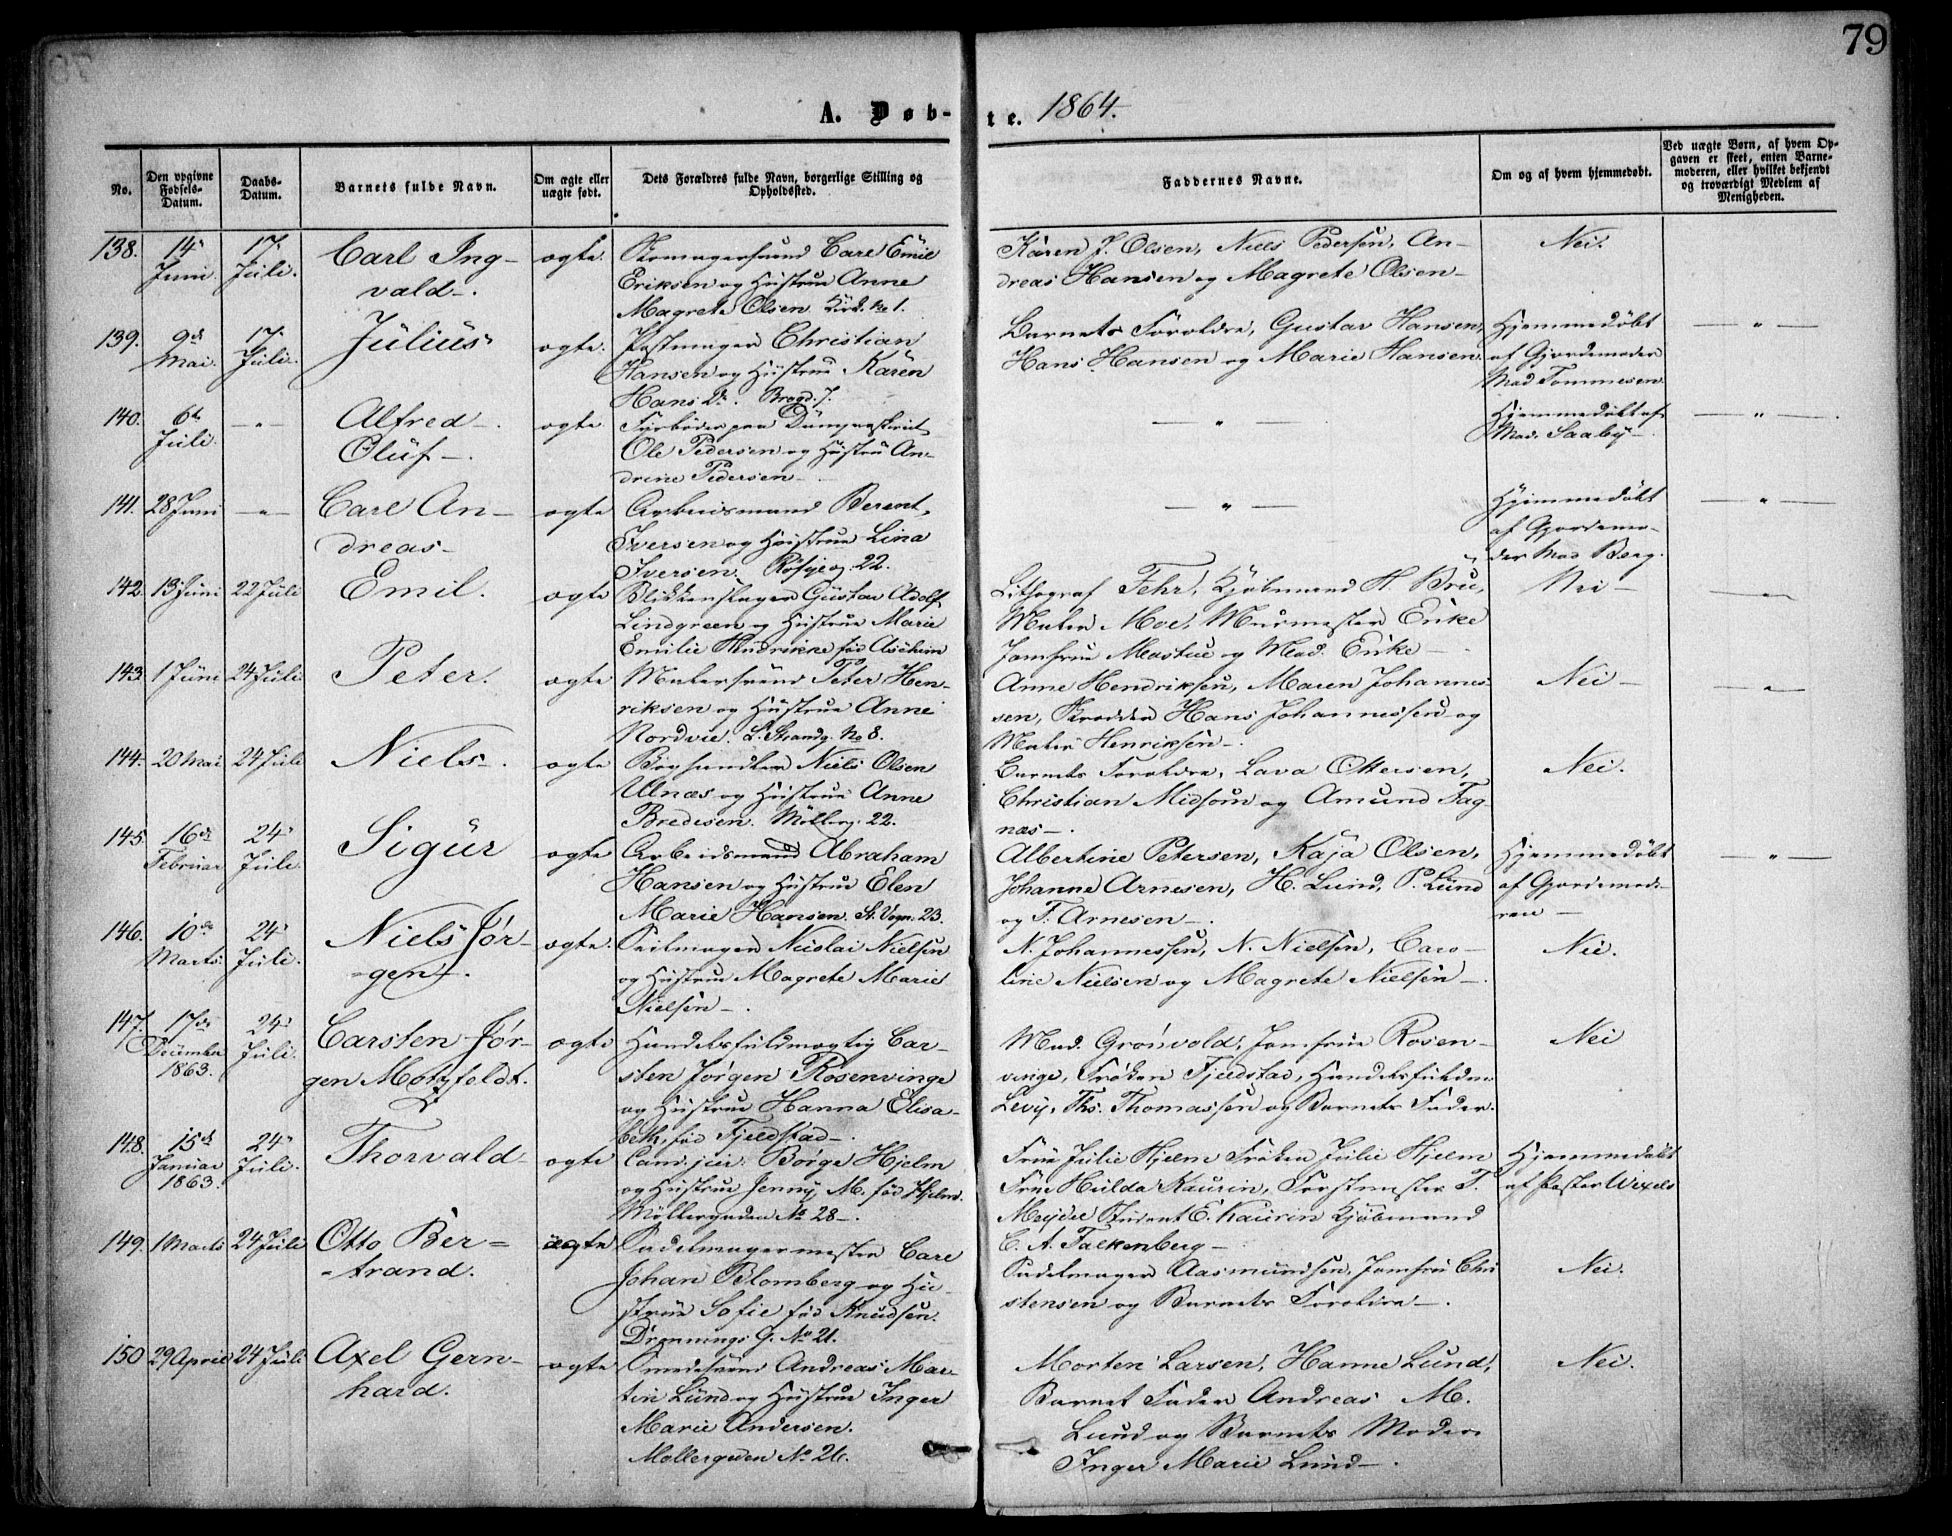 79
A. Døbte. 1864.
No.
Den opgivne Fødsels-Datum.
Daabs-Datum.
Barnets fulde Navn.
Om ægte eller uægte født.
Dets Forældres fulde Navn, borgerlige Stilling og Opholdssted.
Faddernes Navne.
Om og af hvem hjemmedøbt.
Ved uægte Børn, af hvem Opgaven er skeet, enten Barnemoderen, eller hvilket bekjendt og troværdigt Medlem af Menigheden.
138. 14 Juni 17 Juli. Carl Ing-
vald. ægte. Skomagersvend Carl Emil
Eriksen og Hustrue Anne
Magrete Olsen.
Karen J. Olsen, Niels Pedersen, An-
dreas Hansen og Magrete Olsen
Nei.
139. 9de Mai. 17 Juli. Julius ægte. Christian
Hansen og Hustrue Karen
Hans Dr. Bragd. 7.
Barnets Forældre, Gustav Hansen,
Hans Hansen og Marie Hansen.
Hjemmedøbt
af Gjordemoder
Mad Tommesen
140. 6te Juli. " Alfred
Oluf. ægte Fyrbøder paa
Ole Pedersen og Hustru An-
drine Pedersen
"
Hjemmedøbt af
Mad. Saaby
141. 28 Juni " Carl An-
dreas ægte Arbeidsmand Berent
Iversen og Hustrue Lina
Iversen. 22.
"
Hjemmedøbt
af Gjordemo-
der Mad Berg.
142. 13 Juni 22 Juli Emil. ægte Blikkenslager Gustav Adolf
Lindgreen og Hustrue Marie
Emilie Hindrikke fød Aschim
Lithograf Fehr, Kjøbmand H. Bru,
Maler Moe, Murmester Enke
Jomfrue Mastue og Mad. Enke
Nei
143. 1 Juni 24 Juli Peter. ægte Malersvend Peter Hen-
riksen og Hustrue Anne
Nordvie. L. Strandg. No 8.
Anne Hendriksen, Maren Johannes-
sen, Skrædder Hans Johannessen og
Maler Henriksen.
Nei
144. 20 Mai 24 Juli Niels. ægte Boghandler Niels Olsen
Ulnæs og Hustrue Anne
Bredesen. Møllerg. 22.
Barnets Forældre, Lava Ottersen,
Christian Midsom og Amund Fag-
næs.
Nei.
145. 16de Februar 24 Juli. Sigur ægte Arbeidsmand Abraham
Hansen og Hustrue Elen
Marie Hansen. St. Vogn. 23.
Albertine Petersen, Kaja Olsen,
Johanne Arnesen, H. Lund, P. Lund
og T. Arnesen.
Hjemmedøbt
af Gjordemode-
ren
146. 10de Marts. 24 Juli. Niels Jør-
gen. ægte. Seilmager Nicolai Nielsen
og Hustrue Magrete Marie
Nielsen.
N. Johannessen, N. Nielsen, Caro-
line Nielsen og Magrete Nielsen.
Nei.
147. 17de December 1863. 24 Juli. Carsten Jør-
gen Motzfeldt. ægte Handelsfuldmægtig Car-
sten Jørgen Rosenvinge
og Hustrue Hanna Elisa-
beth, fød Fjeldstad.
Mad. Grønvold, Jomfrue Rosen-
vinge, Frøken Fjeldstad, Handelsfuldm.
Levy, Ths. Thomassen og Barnets Fader.
Nei
148. 15de Januar 1863. 24 Juli. Thorvald ægte Børge Hjelm
og Hustrue Jenny M. fød Hjelm.
Møllergaden No 28.
Frue Julie Hjelm Frøken Julie Hjelm
Frue Hulda Kaurin, Forstmester T.
Mejdel Student E. Kaurin Kjøbmand
C. A. Falkenberg
Hjemmedøbt
af Pastor Wexels
149. 1 Marts 24 Juli Otto Ber-
trand. ægte Sadelmagermester Carl
Johan Blomberg og Hu-
strue Sofie fød Knudsen.
Dronnings G. No 21.
Sadelmager Aasmundsen, Jomfru Chri
stensen og Barnets Forældre.
Nei.
150 29 April 24 Juli Axel Gern-
hard. ægte Smedesvend Andreas Mar-
tin Lund og Hustrue Inger
Marie Andersen.
Møllergaden No 26.
Morten Larsen, Hanne Lund,
Barnet Fader Andreas M.
Lund og Barnets Moder
Inger Marie Lund.
Nei.